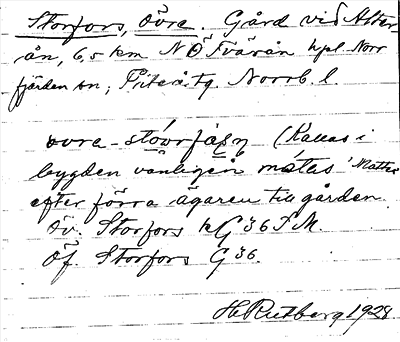 Storfors, övre. Gård vid Alter-
ån, 6,5 km NÖ Tvärån hpl. Norr
fjärden sn, Piteå tg. Norrb. l.
övre-
(Kallas i
bygden vanligen mátas 'Mattes
efter förra ägaren till gården.
Öv. Storfors kG 36 S.M.
Öf. Storfors G 36.
H. Rutberg 1928